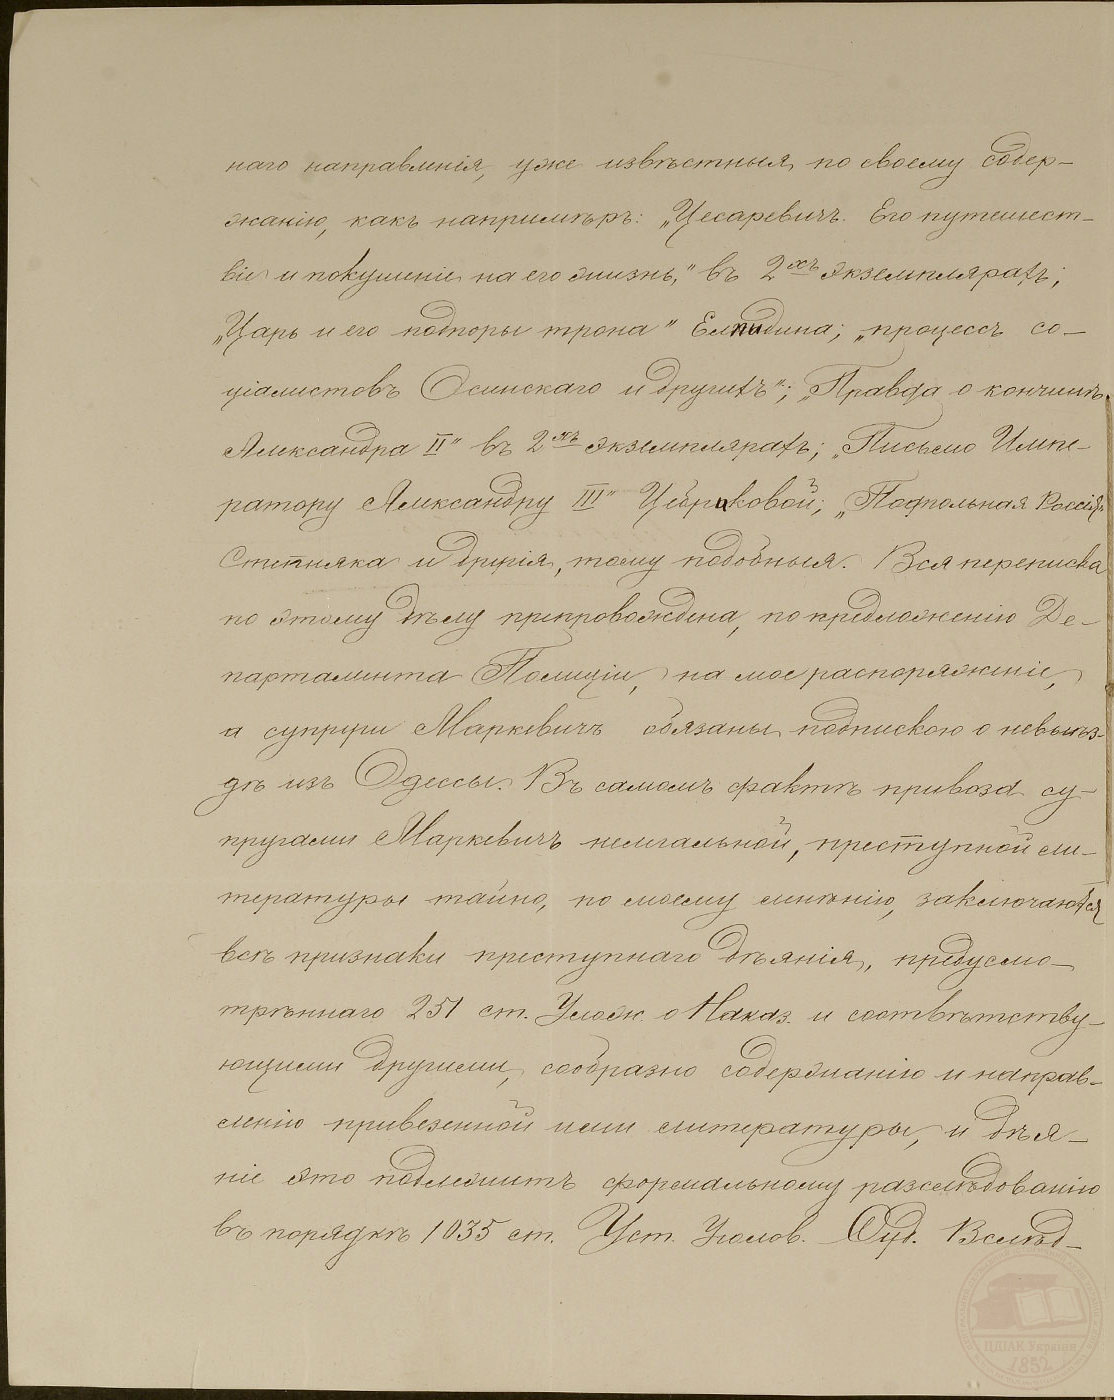 наго направленія, уже извѣстныя по своему содер-
жанію, какъ напримѣръ: „Цесаревичъ. Его путешест-
віе и покушеніе на его жизнь," въ 2хъ экземплярахъ;
„Царь и его подпоры трона" Елпидина; „процессъ со-
ціалистовъ Осинскаго и другихъ"; „Правда о кончинѣ
Александра II" въ 2хъ экземплярахъ; „Письмо Импе-
ратору Александру III" Цебриковой; „Подпольная Россія"
Степняка и другія, тому подобныя. Вся переписка
по этому дѣлу препровождена, по предложенію Де-
партамента Полиціи, на мое распоряженіе,
а супруги Маркевичъ обязаны подпискою о невыѣз-
дѣ изъ Одессы. Въ самомъ фактѣ привоза су-
пругами Маркевичъ нелегальной, преступной ли-
тературы тайно, по моему мнѣнію, заключаются
всѣ признаки преступнаго дѣянія, предусмо-
трѣннаго 251 ст. Улож. о Наказ. и соотвѣтству-
ющими другими, сообразно содержанію и направ-
ленію привезенной ими литературы, и дѣя-
ніе это подлежитъ формальному разслѣдованію
въ порядкѣ 1035 ст. Уст. Уголов. Суд. Вслѣд-
ЦДІАК України
1852